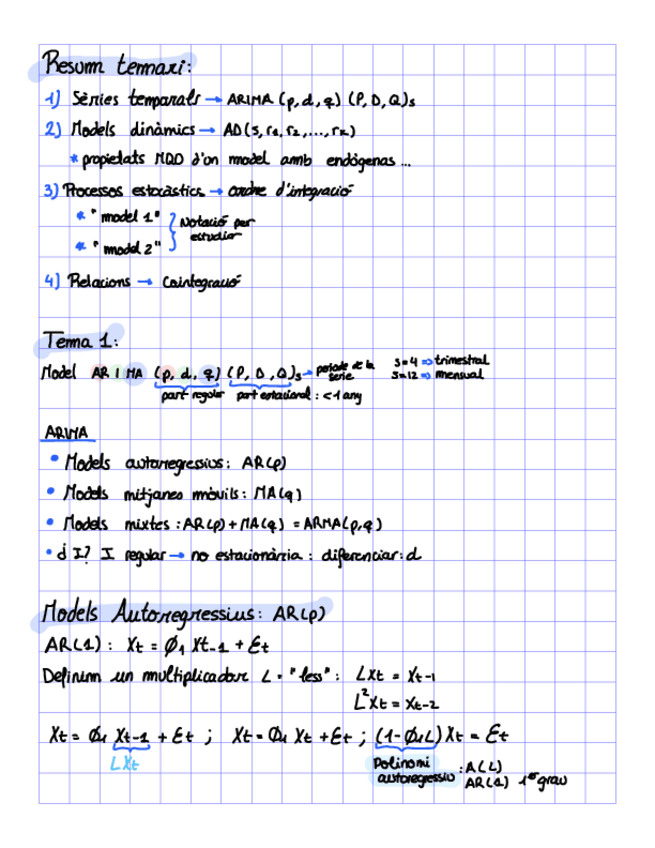 Resum temari:
1) Sèries temporals → ARIMA (p, d, q) (P, D, Q)s
2) Models dinàmics → AD(s, r1, r2, ..., rk)
* propietats MQO d'on model amb endògenas ...
3) Processos estocàstics → ordre d'integració
* "model 1" } Notació per
* "model 2" estudiar
4) Relacions → Cointegració
Tema 1:
Model ARIMA (p, d, q) (P, D, Q)s → període de la sèrie s=4 ⇒ trimestral
s=12 ⇒ mensual
part regular part estacional: <1 any
ARIMA
• Models autorregressius: AR(p)
• Models mitjanes mòvils: MA(q)
• Models mixtes: AR(p)+MA(q) = ARMA(p,q)
• ¿I? I regular → no estacionària: diferenciar: d
Models Autoregressius: AR(p)
AR(1): Xt = Ø1 Xt-1 + Ɛt
Definim un multiplicador L = "less": LXt = Xt-1
L²Xt = Xt-2
Xt = Ø1 Xt-1 + Ɛt ; Xt = Ø1 Xt + Ɛt ; (1-Ø1L)Xt = Ɛt
LXt
Polinomi autoregressiu : A(L)
AR(1) 1er grau